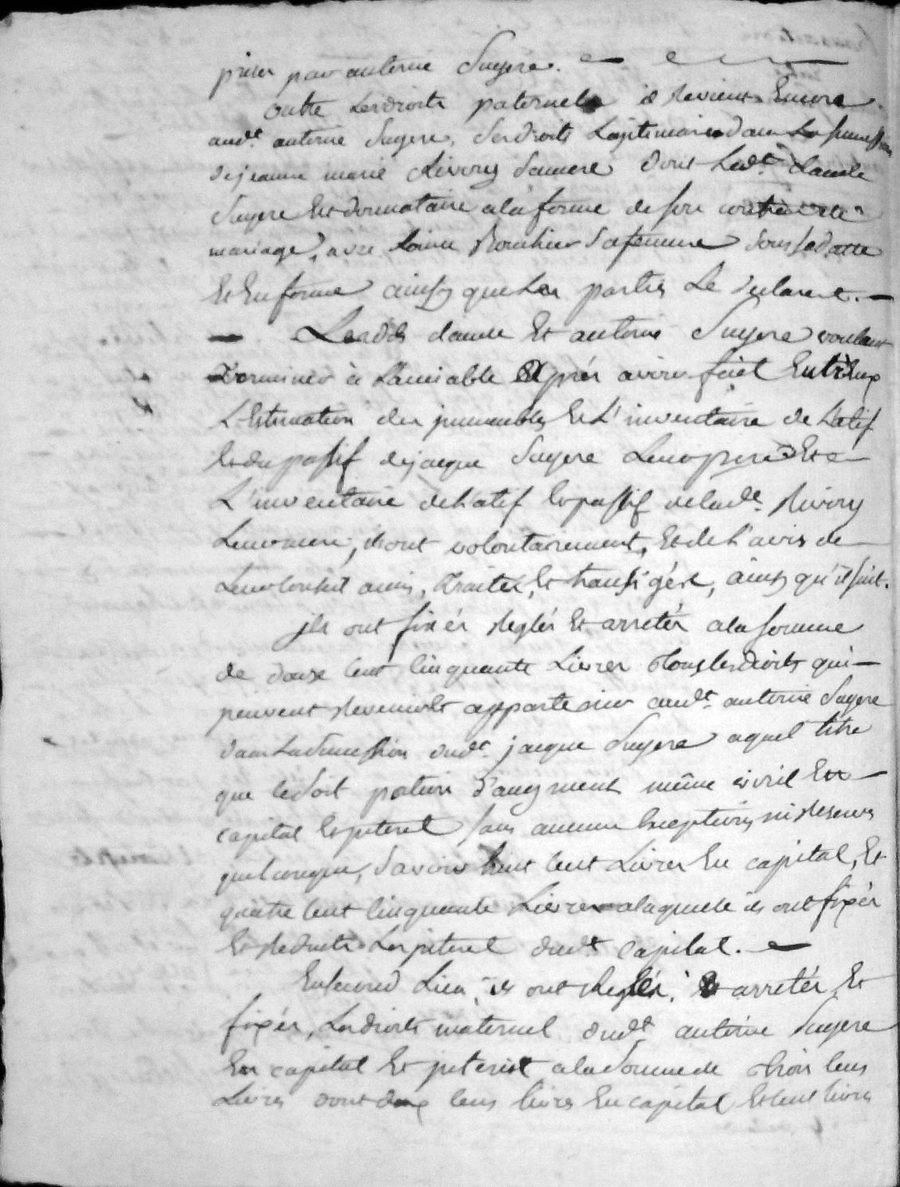 priser par antoine Suyere.
outre Les droits paternels il revient Encore
aud.t antoine Suyere, Ses droits Legitimaires dans La succession
de jeanne marie Rivory Sa mere dont Led.t Claude
Suyere Est donnataire a la forme de son contrat de
mariage, avec Bouchier Sa femme Sous Sa datte
Et En forme ainsy que Les parties Le declarent.
Lesdits claude Et antoine Suyere voulant
Terminer à L'amiable Après avoir fait Entr'eux
L'Estimation des immeubles Et L'inventaire de L'atif
Et du passif de jacque Suyere Leur pere Et
L'inventaire de L'atif Et passif de lad.e Rivory
Leur mere, ont volontairement, Et de L'avis de
Leur Conseil amis, traités, Et transigést, ainsy qu'il suit.
ils ont fixés reglés Et arretés a la somme
de douze Cent Cinquante Livres tous Les droits qui
peuvent revenir Et appartenir aud.t antoine Suyere
dans La Succession dud.t jacque Suyere a quel titre
que Ce Soit d'augment même En
capital Et interet Sans aucune Exceptions ni reserves
quelconque, Savoir huit Cent Livres En capital, Et
quatre Cent Cinquante Livres a laquelle ils ont fixés
Et reduits Les interet dud.t capital.
En Second Lieu, ils ont reglés, Et arretés Et
fixés, Les droits maternel dud.t antoine Suyere
En capital Et interest a la Somme de trois Cens
Livres dont deux Cens livres En capital Et Cent livres